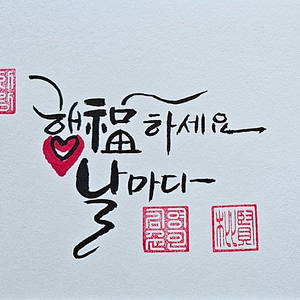 행福하세요
날마다